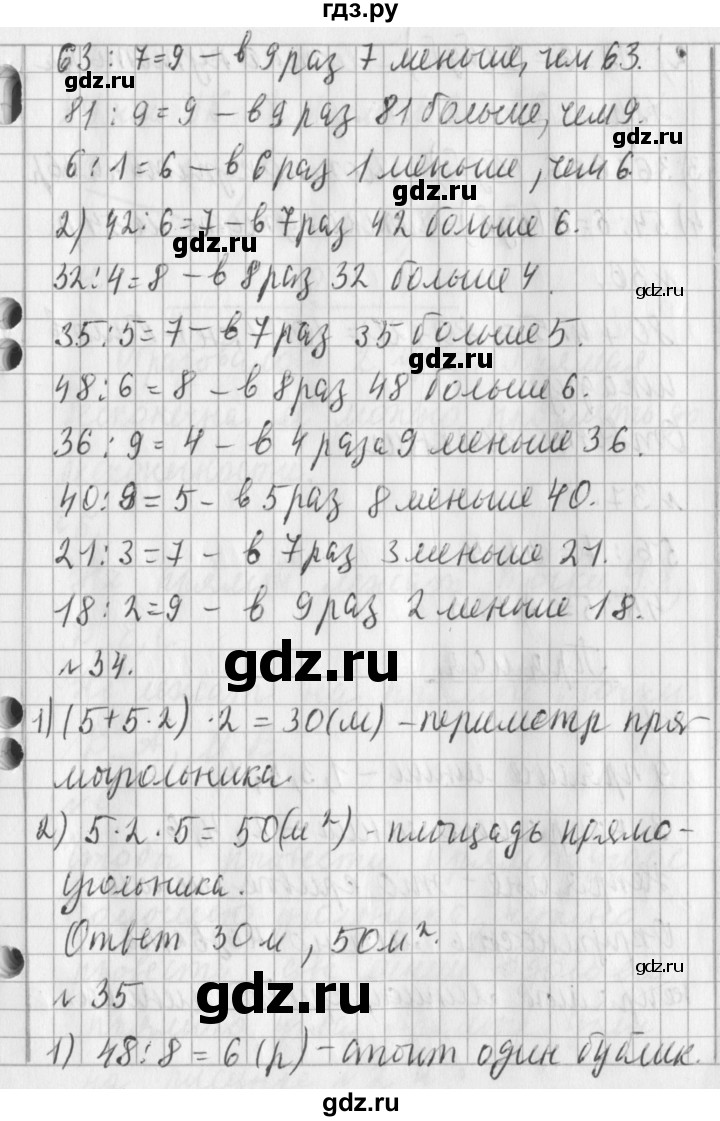 гдз.ру
63 : 7 = 9 – в 9 раз 7 меньше, чем 63.
gdz.ru
81 : 9 = 9 – в 9 раз 81 больше, чем 9.
gdz.ru
6 : 1 = 6 – в 6 раз 1 меньше, чем 6
gdz.ru
2) 42 : 6 = 7 – в 7 раз 42 больше 6.
gdz.ru
32 : 4 = 8 – в 8 раз 32 больше 4.
gdz.ru
35 : 5 = 7 – в 7 раз 35 больше 5.
gdz.ru
48 : 6 = 8 – в 8 раз 48 больше 6.
36 : 9 = 4 – в 4 раза 9 меньше 36.
40 : 8 = 5 – в 5 раз 8 меньше 40.
21 : 3 = 7 – в 7 раз 3 меньше 21.
18 : 2 = 9 – в 9 раз 2 меньше 18.
gdz.ru
№ 34.
1) (5 + 5 · 2) · 2 = 30 (м) – периметр пря-
моугольника.
2) 5 · 2 · 5 = 50 (м²) – площадь прямо-
угольника.
Ответ 30 м, 50 м².
gdz.ru
№ 35
gdz.ru
1) 48 : 8 = 6 (р) – стоит один бублик.
gdz.ru